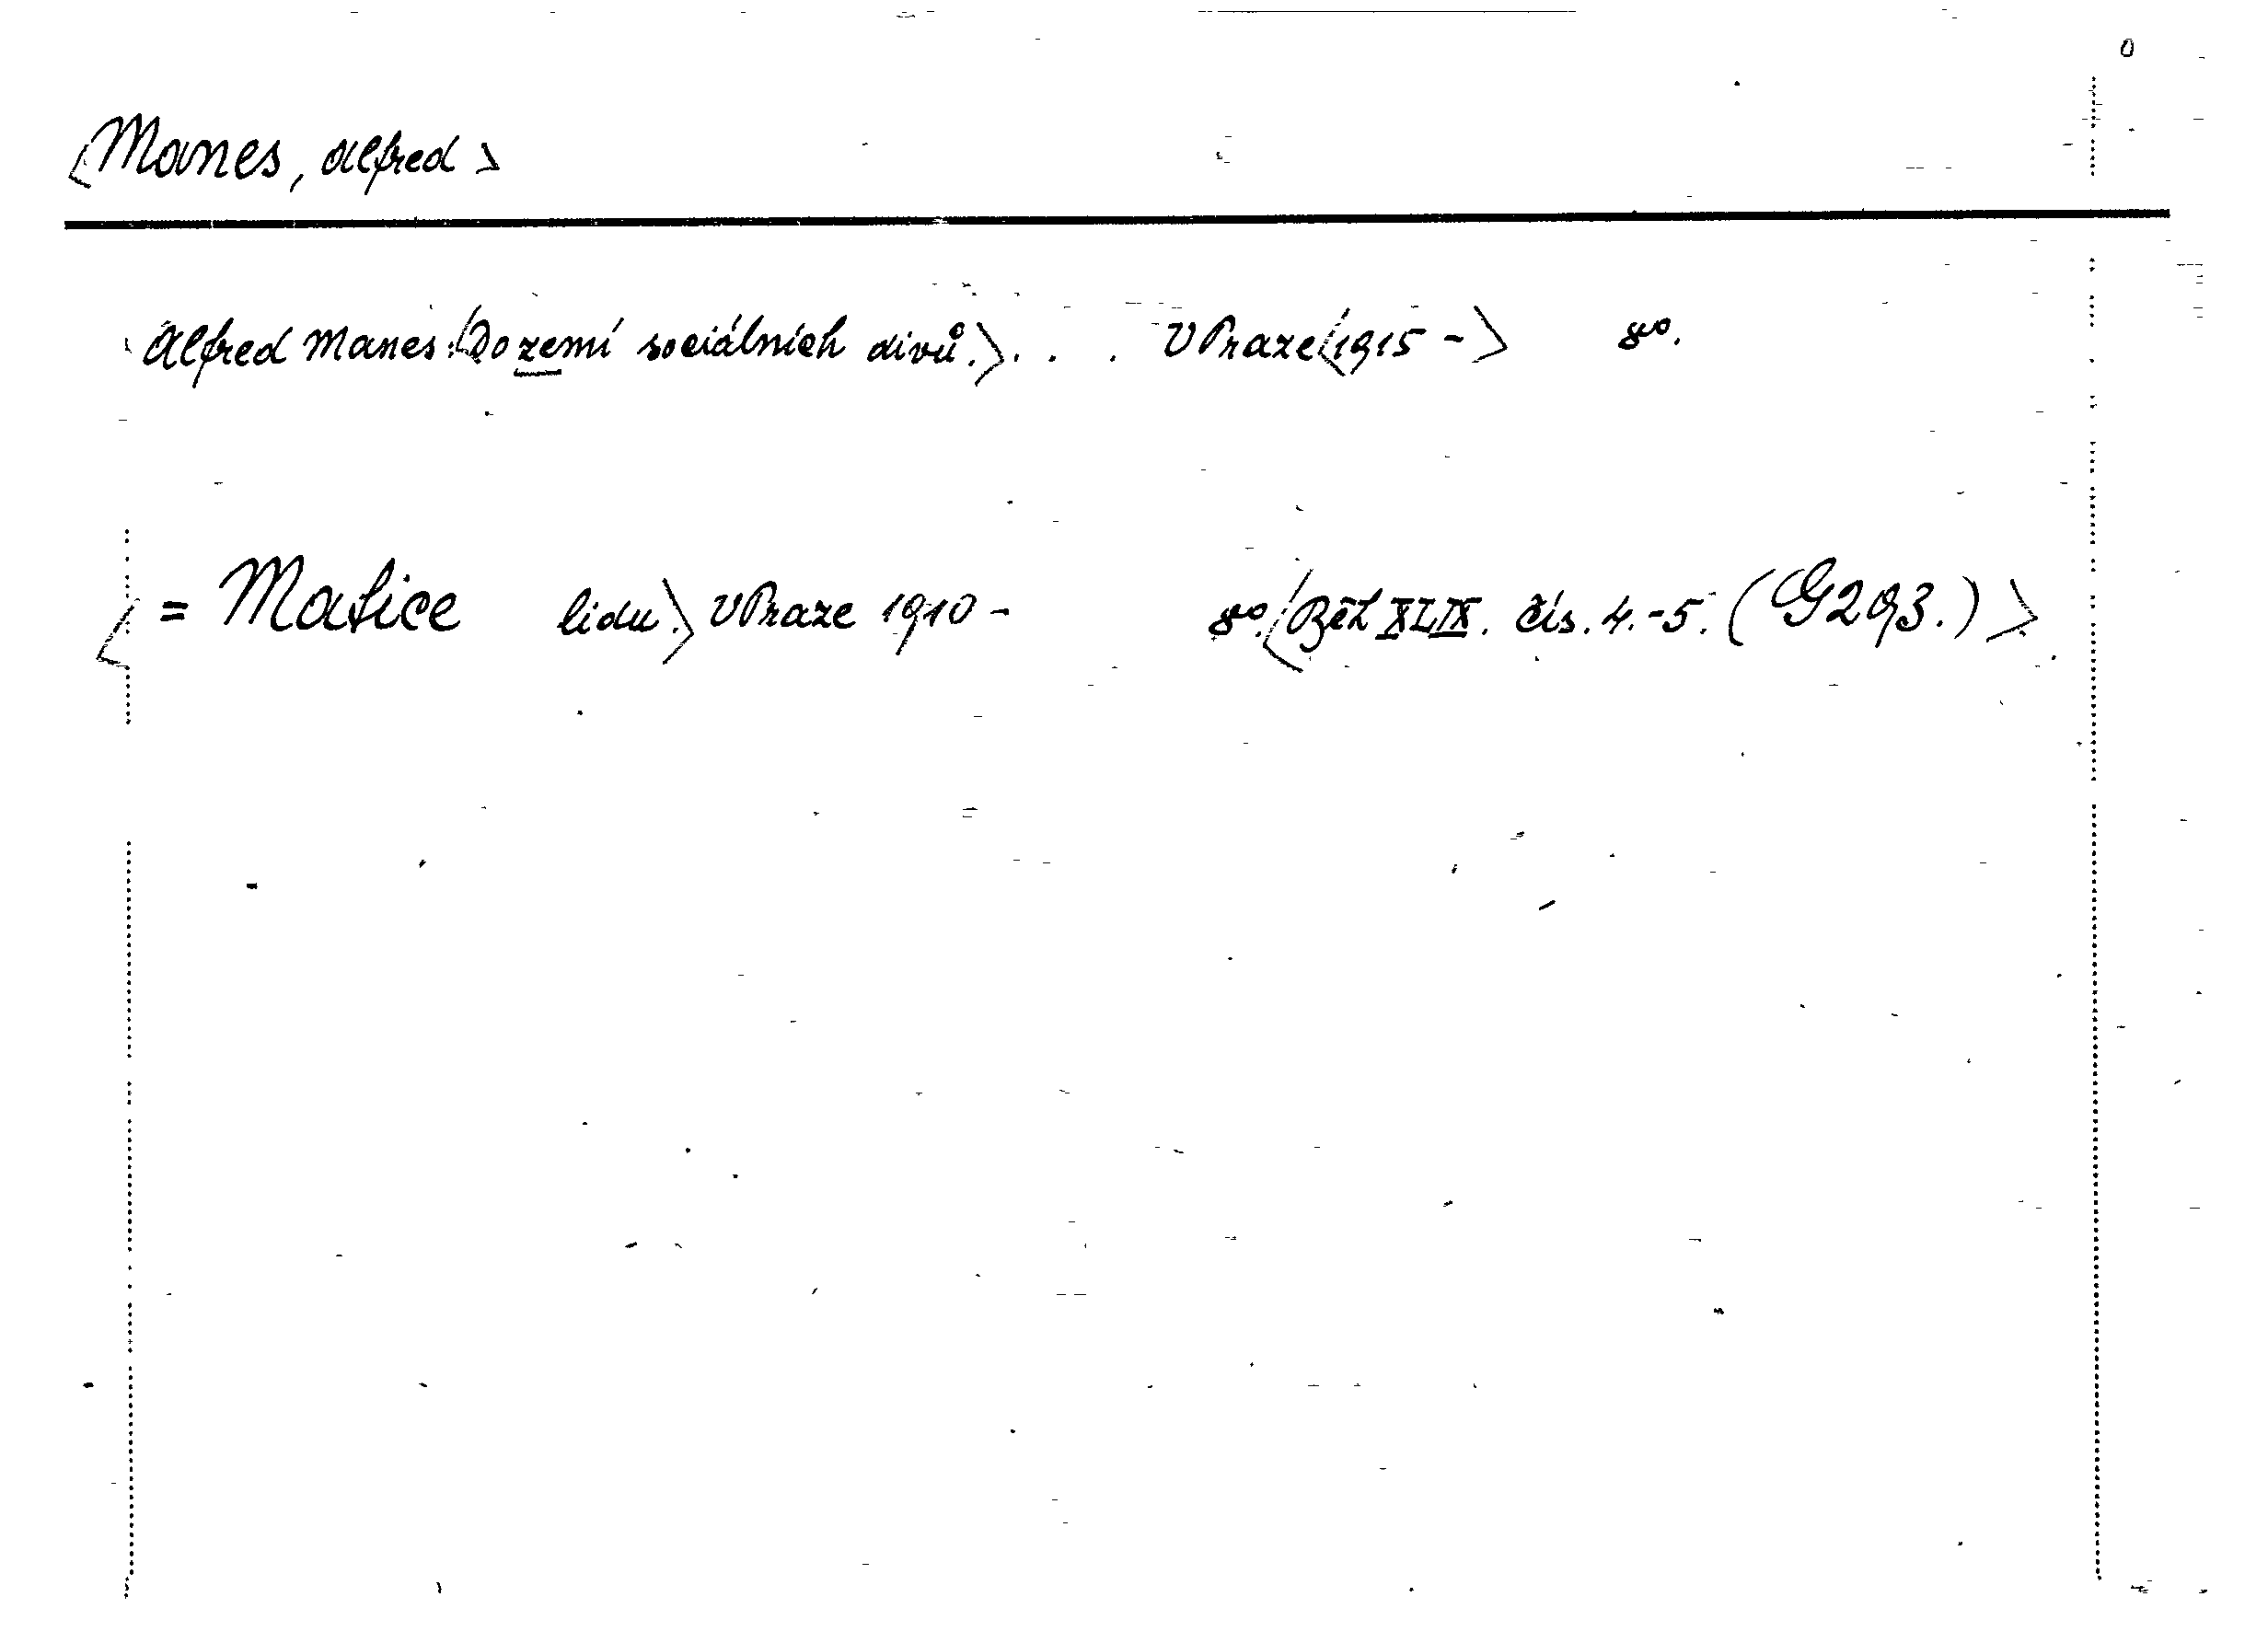 <Manes, Alfred>
Alfred Manes: <Do zemí sociálních divů.> . . . V Praze <1915 -> 8º.
<= Matice lidu.> V Praze 1910 - 8º. <Běh XLIX. čís. 4.-5. (G293.)>